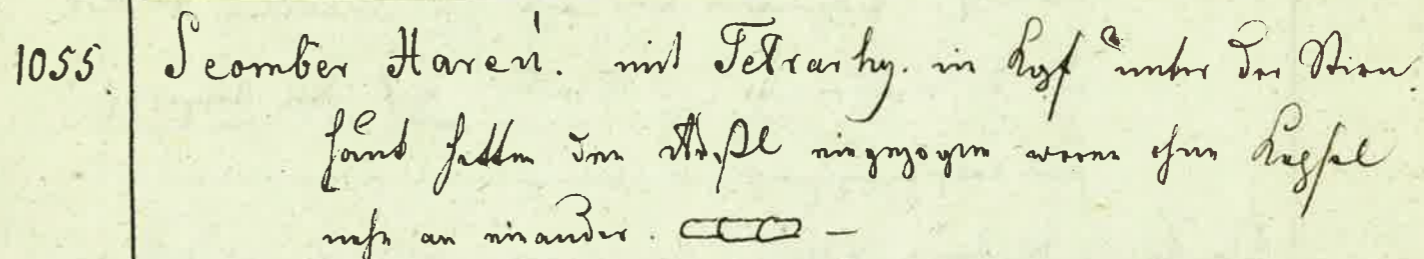 1055. Scomber Hareń. mit Tetrarhy. in Kopf unter der Stirn
haut hatten den eingezogen waren ohne Kapsel
nahe an einander. —